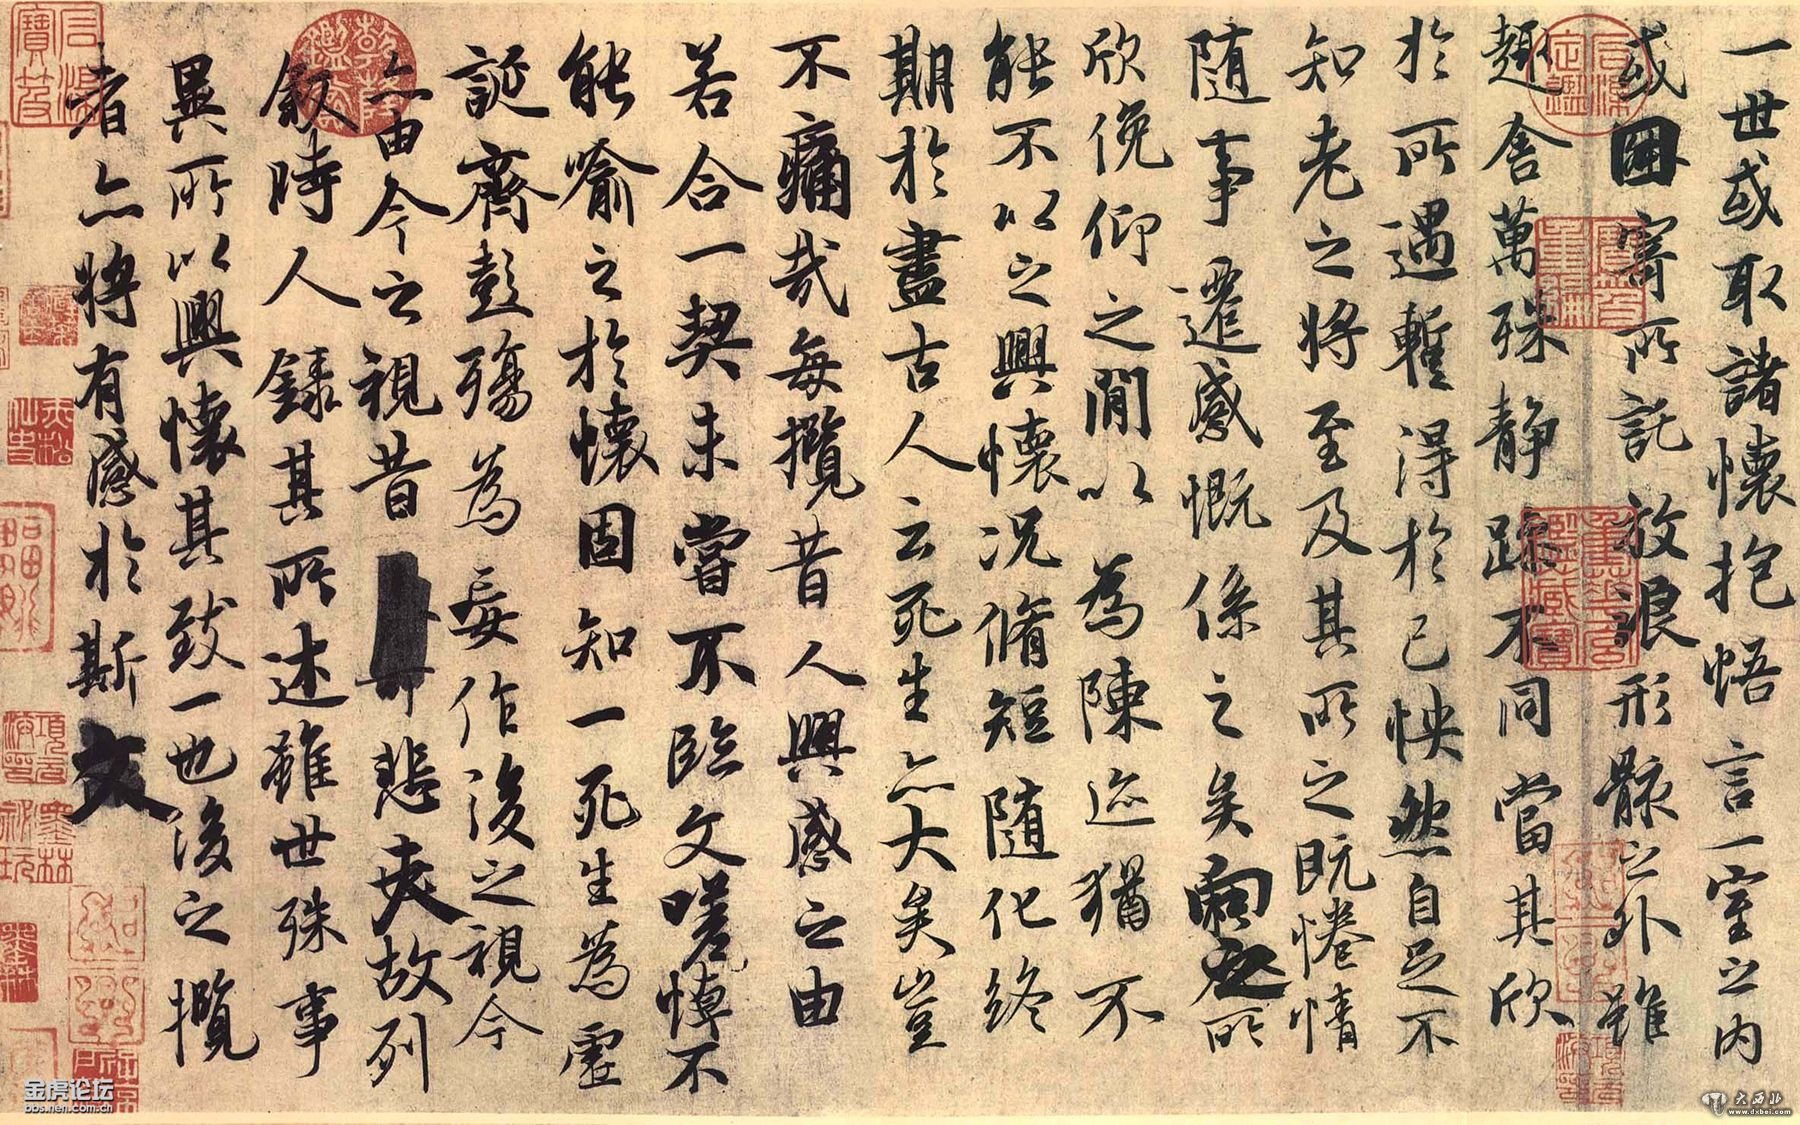 一世或取諸懷抱悟言一室之內
或因寄所託放浪形骸之外雖
趣舍萬殊靜躁不同當其欣
於所遇暫得於己怏然自足不
知老之將至及其所之既惓情
隨事遷感慨係之矣向之所
欣俛仰之閒以為陳迹猶不
能不以之興懷況脩短隨化終
期於盡古人云死生亦大矣豈
不痛哉每攬昔人興感之由
若合一契未嘗不臨文嗟悼不
能喻之於懷固知一死生為虛
誕齊彭殤為妄作後之視今
亦由今之視昔悲夫故列
敘時人錄其所述雖世殊事
異所以興懷其致一也後之攬
者亦將有感於斯文
金虎论坛
bbs.nen.com.cn
大西北
www.dxbei.com